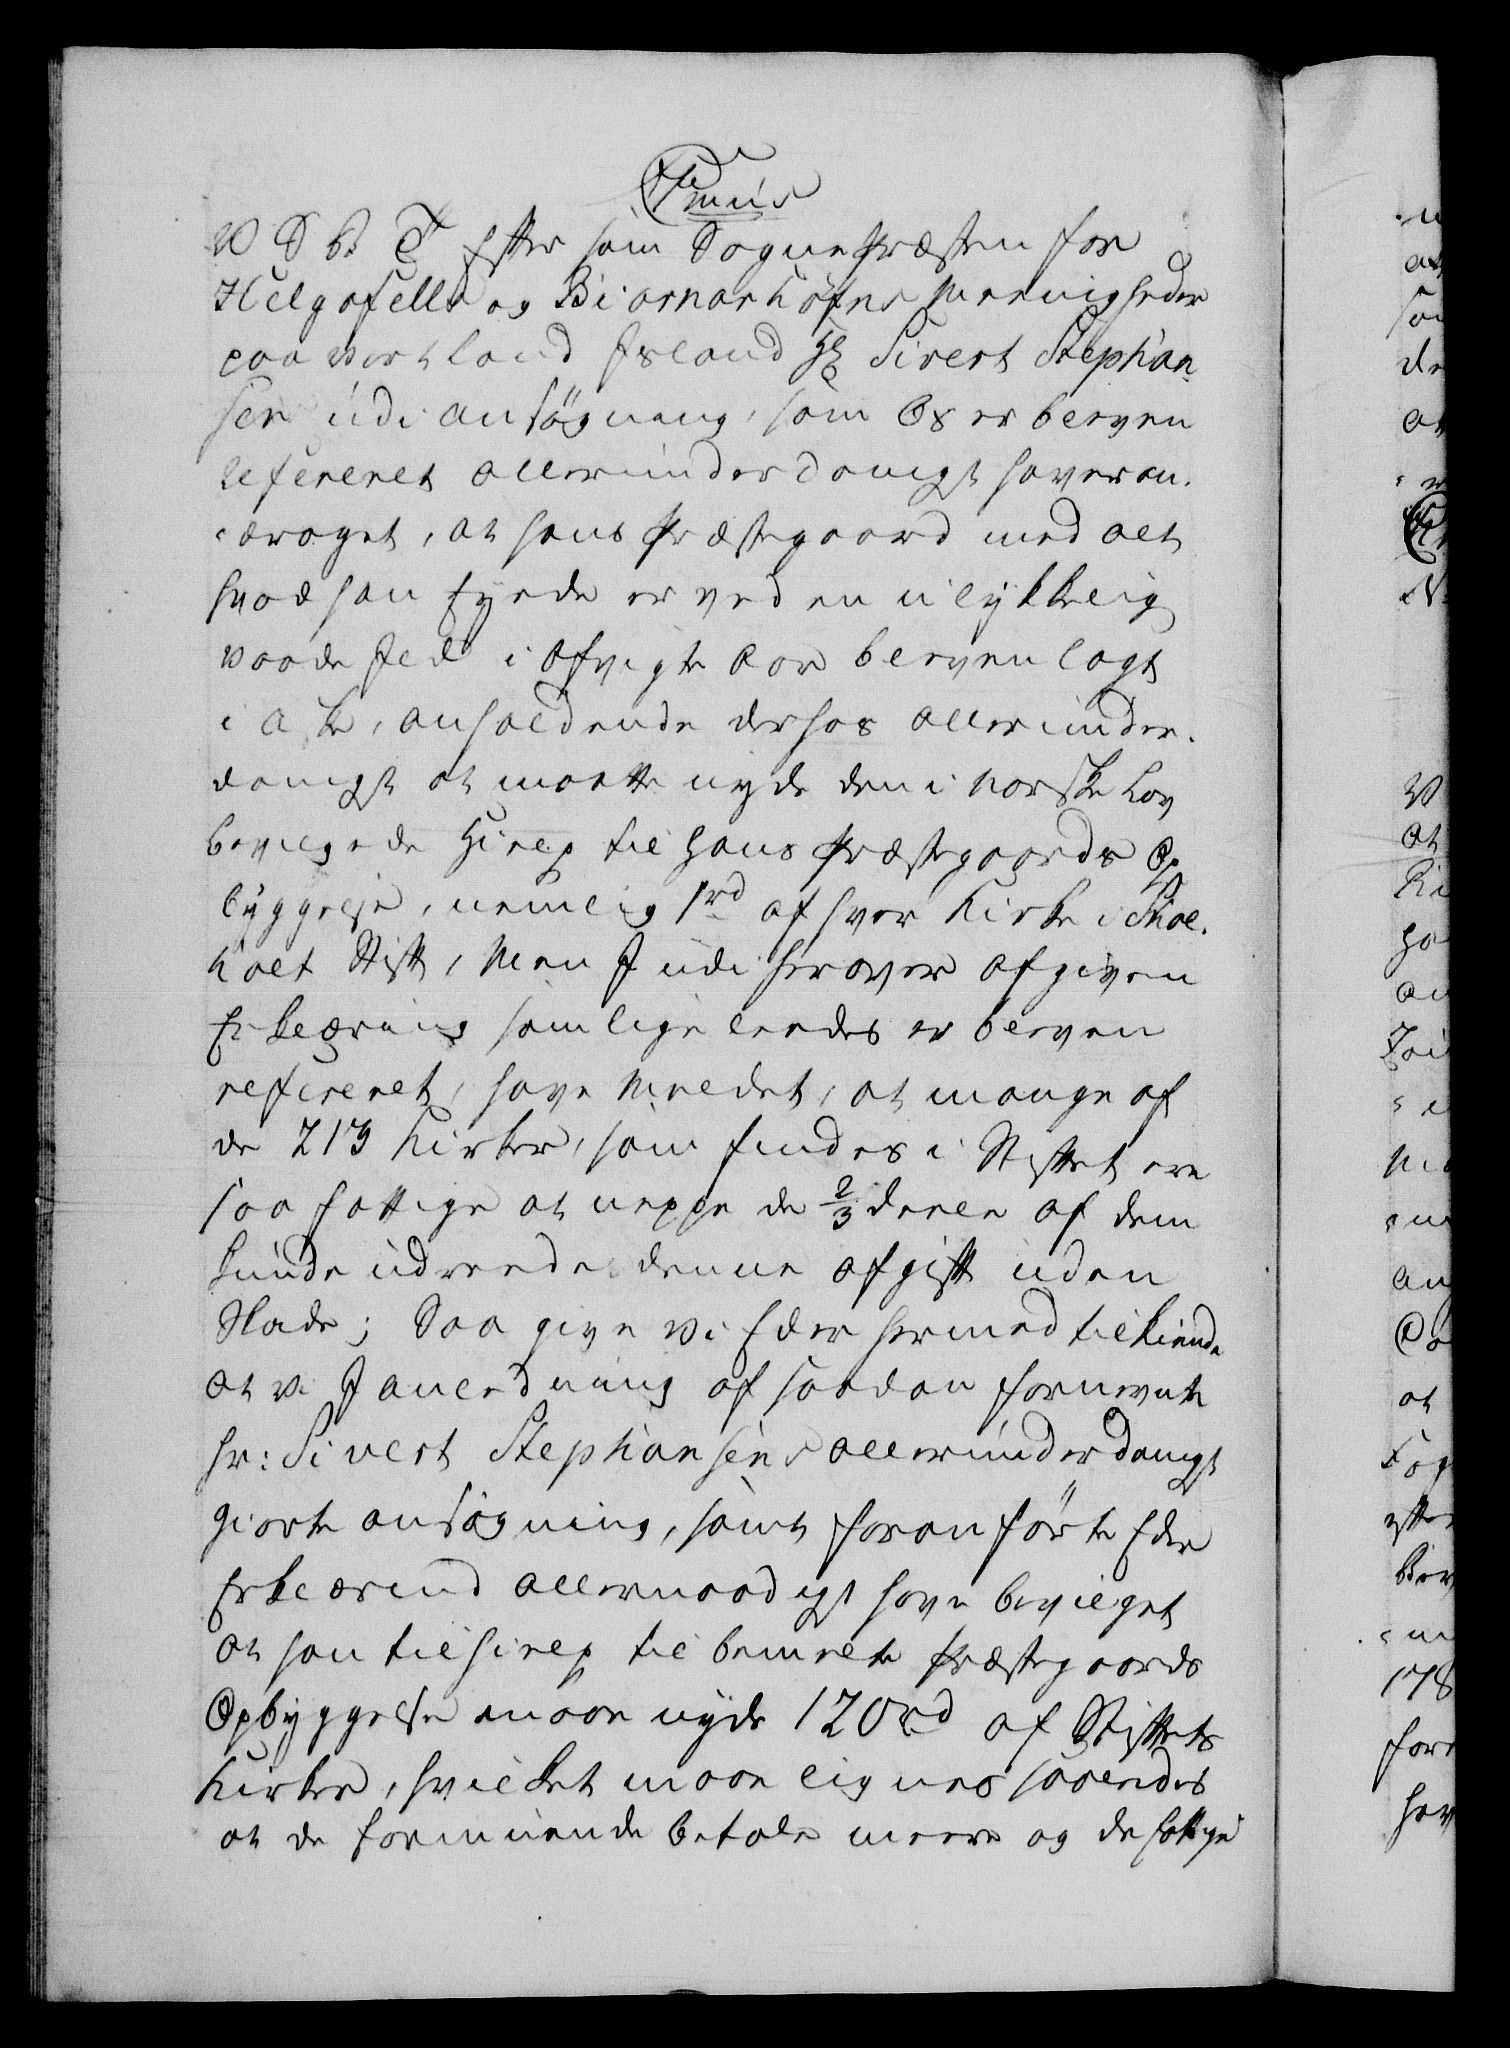 V S G T Efter som Sognepræsten for
Helgafells og Biarnarhöfns Meenigheder
paa vort land Island Hr Sivert Stephan-
sen udi ansögning, som Os er bleven
refereret allerunderdanigst haver an-
draget, at hans Præstegaard med alt
hvad han Eyede er ved en ulykkelig
vaade Ild i afvigte Aar bleven lagt
i Aske, anholdende derhos allerunder-
danigst at maatte nyde den i Norske Lov
bevilgede Hielp til hans Præstegaards Op
byggelse, nemlig 1 rd af hver Kirke i Skal-
holt Stift, Men I udi herover afgiven
Erklæring som ligeleedes er bleven
refereret, have Meldet, at mange af
de 213 Kirker, som findes i Stiftet ere
saa fattige at neppe de 2/3 deele af dem
kunde udreede denne afgift uden
Skade; Saa give vi Eder hermed tilkiende
at vi I anledning af saadan fornevnte
Hr: Sivert Stephansens allerunderdanigst
giorte ansögning, samt foranförte Eders
Erklæring allernaadigst have bevilget
at han til hielp til bemelte Præstegaards
Opbyggelse maae nyde 120 rd af Stiftets
Kirker, hvilket maae lignes saaledes
at de formuende betale meere og de fattige